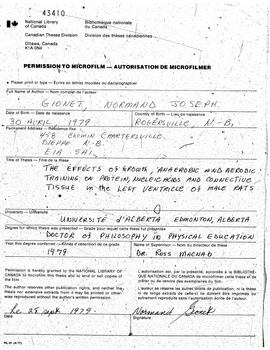 43410
National Library of Canada
Bibliothèque nationale du Canada
Canadian Theses Division
Division des thèses canadiennes
Ottawa, Canada
K1A 0N4
PERMISSION TO MICROFILM — AUTORISATION DE MICROFILMER
• Please print or type — Écrire en lettres moulées ou dactylographier
Full Name of Author — Nom complet de l'auteur
GIONET, NORMAND JOSEPH
Date of Birth — Date de naissance
Country of Birth — Lieu de naissance
30 AVRIL 1979
ROGERSVILLE, N-B.
Permanent Address — Résidence fixe
458 CHEMIN CHARTERSVILLE
DIEPPE N-B.
E1A 5A1
Title of Thesis — Titre de la thèse
THE EFFECTS OF GROWTH, ANAEROBIC AND AERODIC
TRAINING ON PROTEIN, NUCLEIC ACIDS AND CONNECTIVE
TISSUE IN THE LEFT VENTRICLE OF MALE RATS
University — Université
UNIVERSITÉ d'ALBERTA EDMONTON, ALBERTA
Degree for which thesis was presented — Grade pour lequel cette thèse fut présentée
DOCTOR OF PHILOSOPHY IN PHYSICAL EDUCATION
Year this degree conferred — Année d'obtention de ce grade
Name of Supervisor — Nom du directeur de thèse
1979
DR. ROSS MACNAB
Permission is hereby granted to the NATIONAL LIBRARY OF CANADA to microfilm this thesis and to lend or sell copies of the film.
L'autorisation est, par la présente, accordée à la BIBLIOTHÈQUE NATIONALE DU CANADA de microfilmer cette thèse et de prêter ou de vendre des exemplaires du film.
The author reserves other publication rights, and neither the thesis nor extensive extracts from it may be printed or otherwise reproduced without the author's written permission.
L'auteur se réserve les autres droits de publication; ni la thèse ni de longs extraits de celle-ci ne doivent être imprimés ou autrement reproduits sans l'autorisation écrite de l'auteur.
Date
Signature
Le 25 sept 1979
Normand Gionet